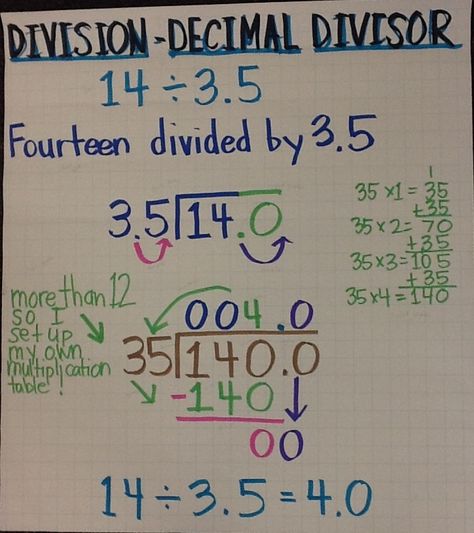 DIVISION - DECIMAL DIVISOR
14 ÷ 3.5
Fourteen divided by 3.5
3.5 14.0
35 x 1 = 35
1
+35
35 x 2 = 70
+35
35 x 3 = 105
+35
35 x 4 = 140
more than 12
so I
set up
my own
multiplication
table!
004.0
35 140.0
-140
00
14 ÷ 3.5 = 4.0